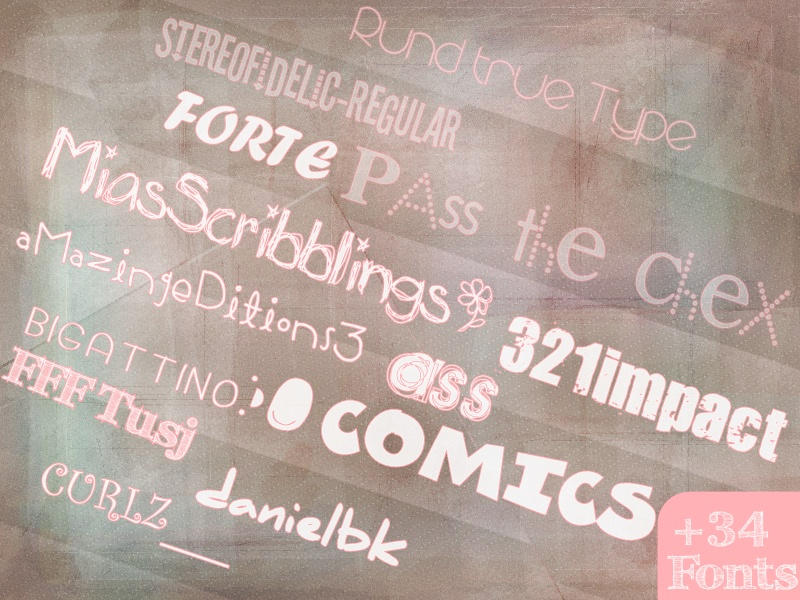 Rund true Type
STEREOFIDELIC-REGULAR
FORTE
PAss the chex
MiasScribblings
aMazingeDitions3
321impact
BIGATTINO:)
ass
COMICS
FFF Tusj
CURLZ
danielbk
+34
Fonts